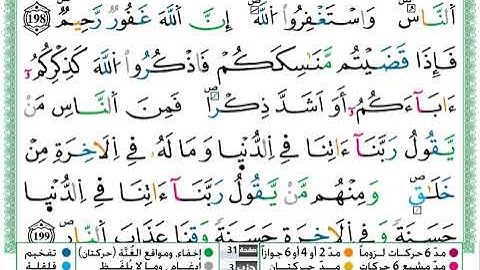 اَ۬لنَّاسُ وَاسْتَغْفِرُواْ اُ۬للَّهَ إِنَّ اَ۬للَّهَ غَفُورٞ رَّحِيمٞ 198
فَإِذَا قَضَيْتُم مَّنَٰسِكَكُمْ فَاذْكُرُواْ اُ۬للَّهَ كَذِكْرِكُمُۥٓ
ءَابَآءَكُمُۥٓ أَوَ اَشَدَّ ذِكْراٗ فَمِنَ اَ۬لنَّاسِ مَنْ
يَّقُولُ رَبَّنَآ ءَاتِنَا فِے اِ۬لدُّنْيَا وَمَا لَهُۥ فِے اِ۬لَاخِرَةِ مِنْ
خَلَٰقٖ وَمِنْهُم مَّنْ يَّقُولُ رَبَّنَآ ءَاتِنَا فِے اِ۬لدُّنْيَا
حَسَنَةٗ وَفِے اِ۬لَاخِرَةِ حَسَنَةٗ وَقِنَا عَذَابَ اَ۬لنَّارِ 199
مدّ 6 حركات لزوماً مدّ 2 أو 4 أو 6 جوازاً صفحة 31 إخفاء، ومواقع الغُنَّة (حركتان) تفخيم
مدّ مشبع 6 حركات مدّ حركتان 3 إدغام، وما لا يُلفَظ قلقلة